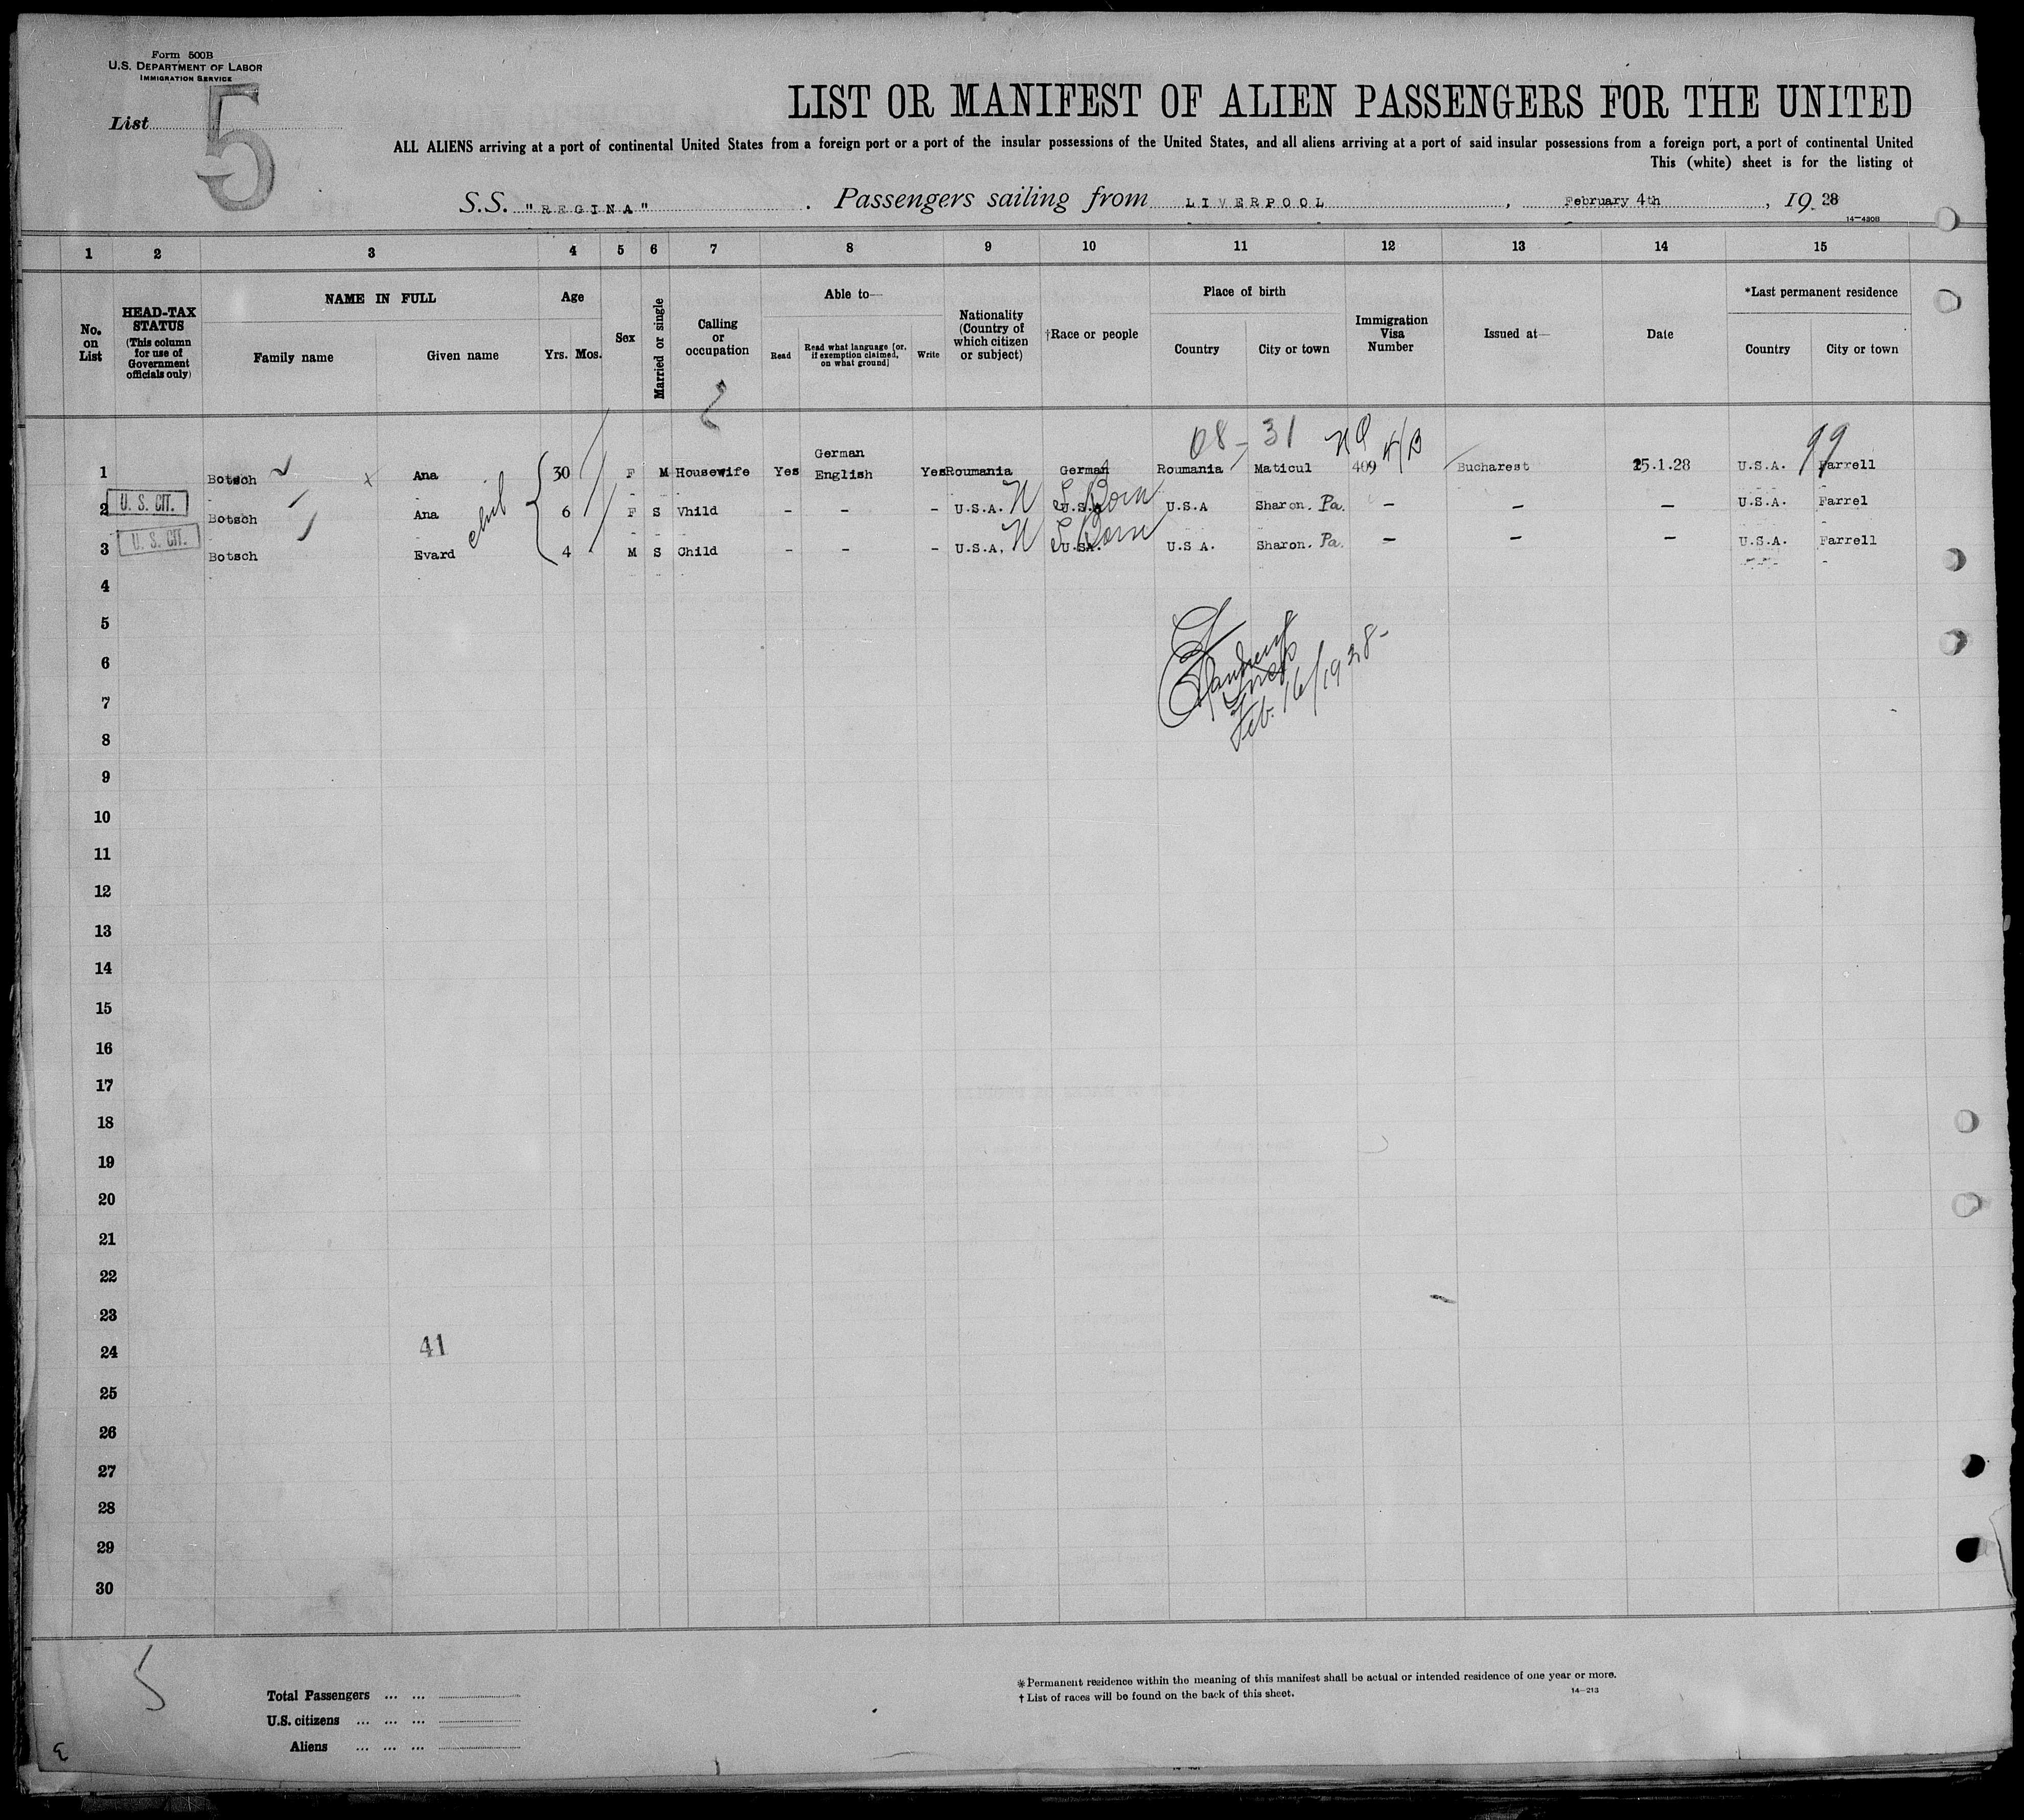 Form 500B
U.S. DEPARTMENT OF LABOR
IMMIGRATION SERVICE
List 5
LIST OR MANIFEST OF ALIEN PASSENGERS FOR THE UNITED
ALL ALIENS arriving at a port of continental United States from a foreign port or a port of the insular possessions of the United States, and all aliens arriving at a port of said insular possessions from a foreign port, a port of continental United
This (white) sheet is for the listing of
S.S. "REGINA". Passengers sailing from LIVERPOOL, February 4th, 19 28
14-4208
1 2 3 4 5 6 7 8 9 10 11 12 13 14 15
No. on List
HEAD-TAX STATUS (This column for use of Government officials only)
NAME IN FULL
Family name Given name
Age
Yrs. Mos.
Sex
Married or single
Calling or occupation
Able to—
Read
Read what language (or, if exemption claimed, on what ground)
Write
Nationality (Country of which citizen or subject)
†Race or people
Place of birth
Country City or town
Immigration Visa Number
Issued at—
Date
*Last permanent residence
Country City or town
08-31 99
German
1 Botsch x Ana 30 F M Housewife Yes English Yes Roumania German Roumania Maticul 409 Bucharest 25.1.28 U.S.A. Farrell
2 U. S. CIT. Botsch Ana 6 F S Vhild - - - U.S.A. U.S.A Born U.S.A Sharon. Pa. - - - U.S.A. Farrel
3 U. S. CIT. Botsch Evard 4 M S Child - - - U.S.A. U.SA. Born U.S A. Sharon. Pa. - - - U.S.A. Farrell
4
5
6
7
Feb. 16/1928-
8
9
10
11
12
13
14
15
16
17
18
19
20
21
22
23
24 41
25
26
27
28
29
30
5
Total Passengers ... ...
U.S. citizens ... ... ...
Aliens ... ... ...
* Permanent residence within the meaning of this manifest shall be actual or intended residence of one year or more.
† List of races will be found on the back of this sheet.
14-213